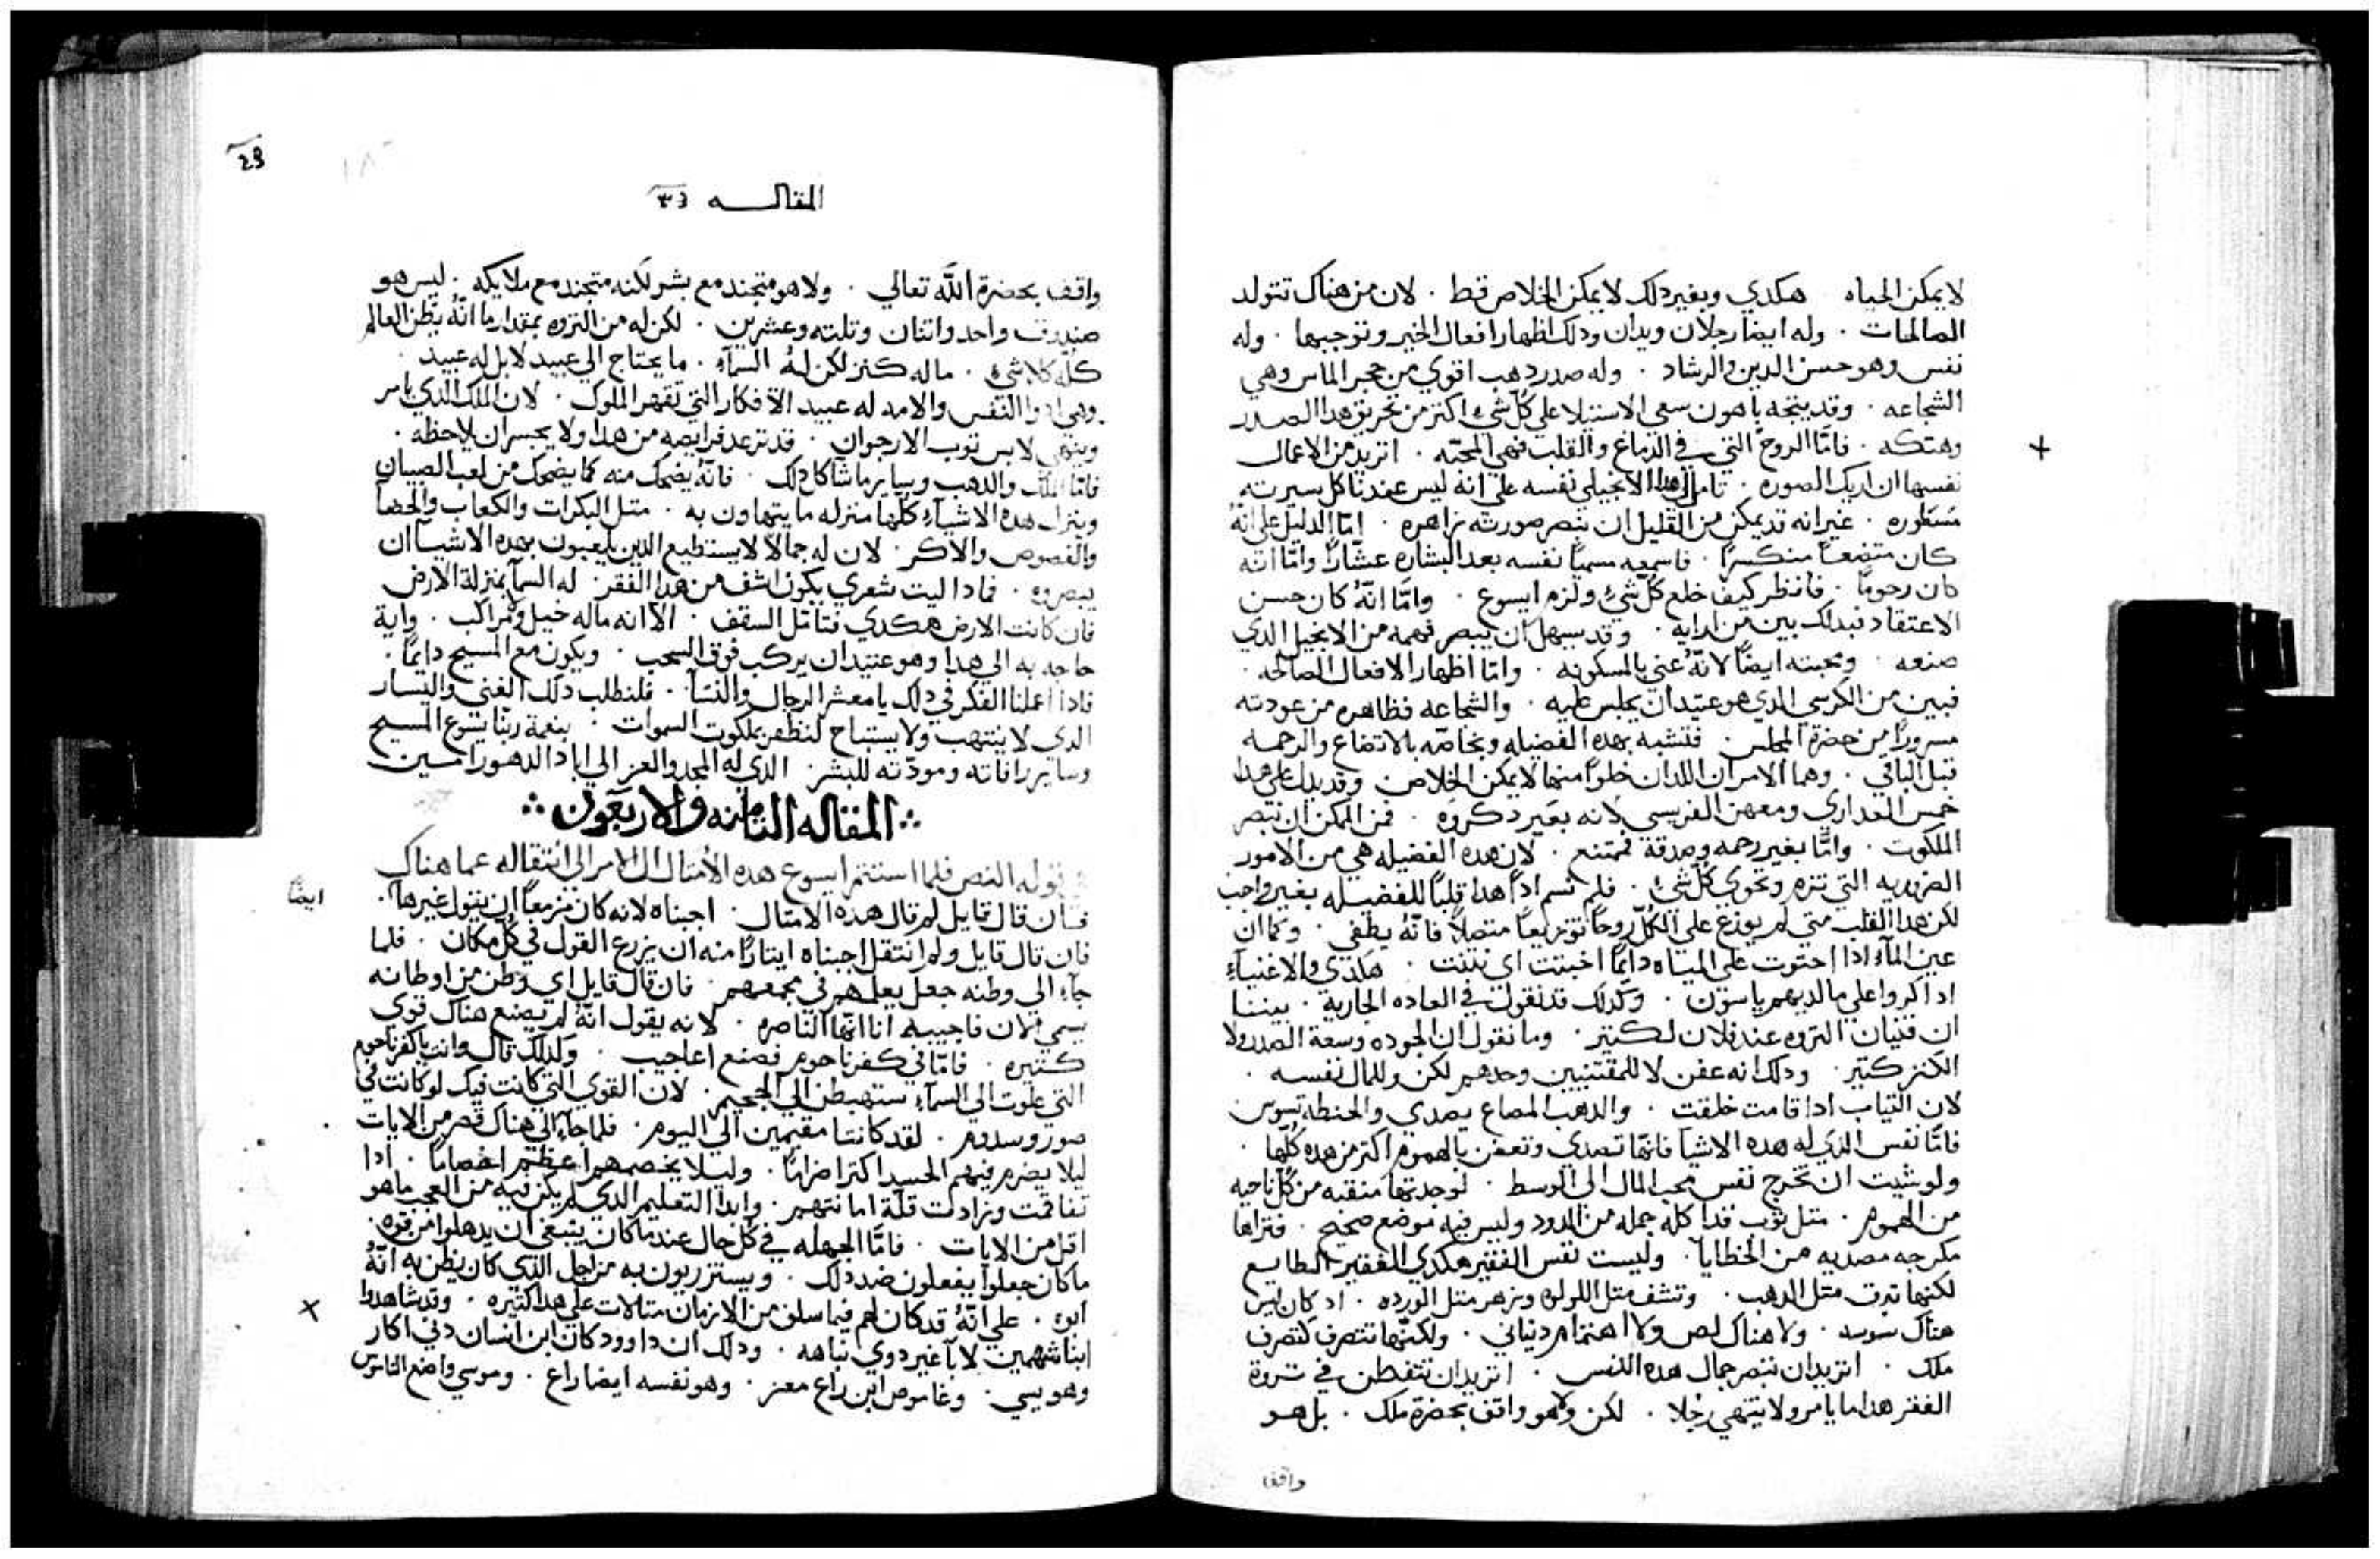 لا يمكن الحياه هكدي وبغير دلك لا يمكن الخلاص قط . لان من هناك تتولد
الصالحات . وله ايضا رجلان ويدان ودلك اظهار افعال الخير وتوجيهها . وله
نفس وهو حسن الدين والرشاد . وله صدر دهب اقوي من حجر الماس وهي
الشجاعه . وقد يتجه باهون سعي الاستيلا علي كل شيء اكتر من تحريق هدا الصدر
وهتكه . فامّا الروح التي في الدماغ والقلب فهي المحبّه . اتريد من الاعمال
نفسها ان اريك الصوره . تامل هدا الانجيلي نفسه علي انه ليس عندنا كل سيرته
مسطوره . غير انه قد يمكن من القليل ان ينصر صورته زاهره . امّا الدليل علي انّهُ
كان متضعاً منكسرًا . فاسمعه مسمياً نفسه بعد البشاره عشّارًا وامّا انّه
كان رحوماً . فانظر كيف خلع كل شيء ولزم ايسوع . وامّا انّهُ كان حسن
الاعتقاد فبدلك بين من ارايه . وقد يسهل ان يبصر فهمه من الانجيل الدي
صنعه . ومحبته ايضًا لانّهُ عني بالمسكونه . وامّا اظهار الافعال الصالحه .
فبين من الكرسي الدي هو عتيد ان يجلس عليه . والشجاعه فظاهره من عودته
مسرورًا من حضرة المجلس . فتشبه بهده الفضيله وبخاصّه بالاتضاع والرحمه
قبل الباقي . وهما الامران اللدان خلوًا منهما لا يمكن الخلاص وقد يدل علي هدا
خمس العداري ومعهن الفريسي لانه بغير دكروه . فمن الممكن ان تبصر
الملكوت . وامّا بغير رحمه وصدقة فممتنع . لان هده الفضيله هي من الامور
الضروريه التي تلزم وتحوي كل شيء . فلم نسم ادًا هدا قلبًا للفضيله بغير واجب
لكن هدا القلب متي لم يوزع علي الكلّ روحًا توزيعاً متصلاً فانّهُ يطفي . وكما ان
عين المآء ادا احتوت علي المياه دايمًا اخبتت اي نتنت . هكدي والاغنيآء
ادا كروا علي ما لديهم ياسون . وكدلك قد نقول في العاده الجاريه . بيننا
ان فنيان التروه عند فلان لكتير . وما نقول ان الجوده وسعة الصدر ولا
الكنز كتير . ودلك انه عفن لا للمقتنيين وحدهم لكن وللمال نفسه .
لان التياب ادا قامت خلقت . والدهب المصاغ يصدي والحنطه تسوس
فامّا نفس الدي له هده الاشيآ فانّها تصدي وتعفن بالهموم اكتر من هده كلّها .
ولو شيت ان تخرج نفس محب المال الي الوسط . لوجدتها منقبه من كل ناحيه
من الهموم . متل توب قد اكله جمله من الدود وليس فيه موضع صحيح . فتراها
مكرجه مصديه من الخطايا . وليست نفس الفقير هكدي الفقير الطايع
لكنها تبرق متل الدهب . وتشف متل اللولوه وتزهر متل الورده . اد كان ليس
هناك سوسه . ولا هناك لص ولا اهتمام دنياني . ولكنّها تتصرف كتصرف
ملك . اتريد ان تبصر جمال هده النفس . اتريد ان تتفطن في تروة
الفقر هدا ما يامر ولا ينتهي رجُلا . لكن ولا هو واقف بحضرة ملك . بل هو
واقف
29
المقاله
واقف بحضرة اللّه تعالي . ولا هو متجند مع بشر لكنه متجند مع ملايكه . ليس هو
صندوق واحد واتنان وتلته وعشرين . لكن له من التروه بمقدار ما انّهُ يظن العالم
كلّه كلا شيء . ما له كنز لكن لهُ السمآء . ما يحتاج الي عبيد لا بل له عبيد .
النفس والامه له عبيد الافكار التي تقهر الملوك . لان الملك الدي يامر
وينهي لابس توب الارجوان . قد ترعد فرايصه من هدا ولا يجسر ان يلاحظه .
فامّا الملك والدهب وساير ما شاكل دلك . فانّهُ يضحك منه كما يضحك من لعب الصبيان
وينزل هده الاشيآء كلّها منزله ما يتهاون به . متل البكرات والكعاب والحصآ
والفصوص والاكر . لان له جمالاً لا يستطيع الدين يلعبون بهده الاشيآ ان
يبصروه . فمادا ليت شعري يكون اشف من هدا الفقر . له السمآ بمنزلة الارض
فان كانت الارض هكدي فتامّل السقف . الاّ انه ما له خيل ولا مراكب . واية
حاجه به الي هدا وهو عتيد ان يركب فوق السحب . ويكون مع المسيح دايمًا .
فادا اعلنا الفكر في دلك يا معشر الرجال والنسآ . فلنطلب دلك الغني واليسار
الدي لا ينتهب ولا يستباح لنظفر بملكوت السموات : بنعمة ربّنا يسوع المسيح
وساير رافاته ومودّته للبشر . الدي له المجد والعز الي اباد الدهور امــين
المقاله التامنه والاربعون
قوله النص فلما استتم ايسوع هده الامتال ال الامر الي انتقاله عما هناك
ايضاً
فان قال قايل لم قال هده الامتال . اجبناه لانه كان مزمعاً ان يقول غيرها .
فان قال قايل ولم انتقل اجبناه ايتارًا منه ان يزرع القول في كل مكان . فلما
جآء الي وطنه جعل يعلمهم في مجمعهم . فان قال قايل اي وطن من اوطانه
يسمي الان فاجيبه انا انّها الناصره . لانه يقول انّهُ لم يصنع هناك قوي
كتيره . فامّا في كفرناحوم فصنع اعاجيب . ولدلك قال وانت يا كفرناحوم
التي علوت الي السمآء ستهبطن الي الجحيم . لان القوي التي كانت فيك لو كانت في
صور وسدوم . لقد كانتا مقيمين الي اليوم . فلما جآء الي هناك قصر من الايات
ليلا يضرم فيهم الحسد اكتر اضرامًا . وليلا يخصمهم اعظم اخصامًا . ادا
تفاقمت وزادت قلّة امانتهم . وابدا التعليم الدي لم يكن فيه من العجب ما هو
اقل من الايات . فامّا الجهله في كل حال عندما كان ينبغي ان يدهلوا من قوه
ما كان جعلوا يفعلون ضد دلك . ويستزريون به من اجل الدي كان يظن به انّهُ
ابوه . علي انّهُ قد كان لهم فيما سلف من الازمان متالات علي هدا كتيره . وقد شاهدوا
ابنا شهمين لابآ غير دوي نباهه . ودلك ان داوود كان ابن انسان دني اكار
وهو يسي . وعاموص ابن راع معز . وهو نفسه ايضا راع . وموسي واضع الناموس